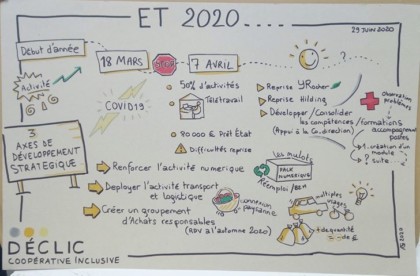 ET 2020....
29 JUIN 2020
Début d'année
18 MARS
STOP
7 AVRIL
?
Activité
COVID19
50% d'activités
Télétravail
90 000 € Prêt Etat
Difficultés reprise
Reprise YRocher
Reprise Hilding
Développer / Consolider
les compétences / formations
(Appui à la Co.direction)
3
AXES DE
DÉVELOPPEMENT
STRATEGIQUE
Renforcer l'activité numerique
Deployer l'activité transport
et logistique
Créer un groupement
d'Achats responsables
(RDV à l'automne 2020)
les mulots
PARC
NUMERIQUE
Réemploi
connexion
paysanne
multiples
usages
+ de gratuité
= - de €
création d'un
module
? suite
DÉCLIC
COOPÉRATIVE INCLUSIVE